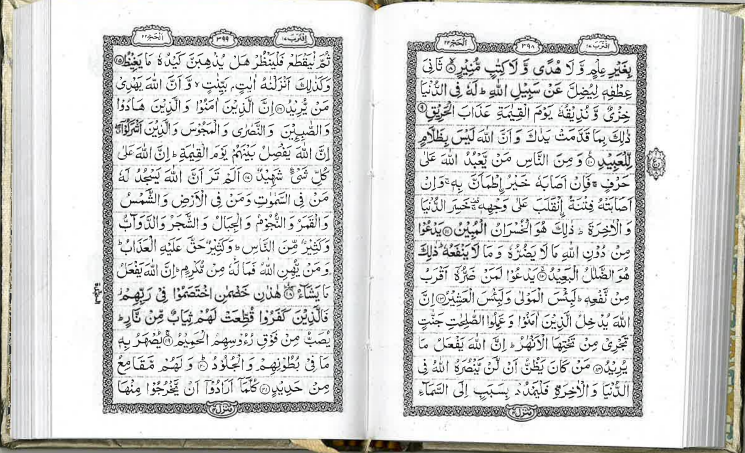 اِقْتَرَبَ ١٧ ٣٩٨ اَلْحَجّ ٢٢
بِغَيْرِ عِلْمٍ وَّلَا هُدًى وَّلَا كِتٰبٍ مُّنِيْرٍ ۙ۝٨ ثَانِيَ
عِطْفِهٖ لِيُضِلَّ عَنْ سَبِيْلِ اللّٰهِ ؕ لَهٗ فِي الدُّنْيَا
خِزْيٌ وَّنُذِيْقُهٗ يَوْمَ الْقِيٰمَةِ عَذَابَ الْحَرِيْقِ ۝٩
ذٰلِكَ بِمَا قَدَّمَتْ يَدٰكَ وَاَنَّ اللّٰهَ لَيْسَ بِظَلَّامٍ
لِّلْعَبِيْدِ ۝١٠ وَمِنَ النَّاسِ مَنْ يَّعْبُدُ اللّٰهَ عَلٰى
حَرْفٍ ۚ فَاِنْ اَصَابَهٗ خَيْرُ ۨاطْمَاَنَّ بِهٖ ۚ وَاِنْ
اَصَابَتْهُ فِتْنَةُ ۨانْقَلَبَ عَلٰى وَجْهِهٖ ۚ خَسِرَ الدُّنْيَا
وَالْاٰخِرَةَ ؕ ذٰلِكَ هُوَ الْخُسْرَانُ الْمُبِيْنُ ۝١١ يَدْعُوْا
مِنْ دُوْنِ اللّٰهِ مَا لَا يَضُرُّهٗ وَمَا لَا يَنْفَعُهٗ ؕ ذٰلِكَ
هُوَ الضَّلٰلُ الْبَعِيْدُ ۝١٢ يَدْعُوْا لَمَنْ ضَرُّهٗۤ اَقْرَبُ
مِنْ نَّفْعِهٖ ؕ لَبِئْسَ الْمَوْلٰى وَلَبِئْسَ الْعَشِيْرُ ۝١٣ اِنَّ
اللّٰهَ يُدْخِلُ الَّذِيْنَ اٰمَنُوْا وَعَمِلُوا الصّٰلِحٰتِ جَنّٰتٍ
تَجْرِيْ مِنْ تَحْتِهَا الْاَنْهٰرُ ؕ اِنَّ اللّٰهَ يَفْعَلُ مَا
يُرِيْدُ ۝١٤ مَنْ كَانَ يَظُنُّ اَنْ لَّنْ يَّنْصُرَهُ اللّٰهُ فِي
الدُّنْيَا وَالْاٰخِرَةِ فَلْيَمْدُدْ بِسَبَبٍ اِلَى السَّمَآءِ
اِقْتَرَبَ ١٧ ٣٩٩ اَلْحَجّ ٢٢
ثُمَّ لْيَقْطَعْ فَلْيَنْظُرْ هَلْ يُذْهِبَنَّ كَيْدُهٗ مَا يَغِيْظُ ۝١٥
وَكَذٰلِكَ اَنْزَلْنٰهُ اٰيٰتٍۭ بَيِّنٰتٍ ۙ وَّاَنَّ اللّٰهَ يَهْدِيْ
مَنْ يُّرِيْدُ ۝١٦ اِنَّ الَّذِيْنَ اٰمَنُوْا وَالَّذِيْنَ هَادُوْا
وَالصّٰبِـِٕيْنَ وَالنَّصٰرٰى وَالْمَجُوْسَ وَالَّذِيْنَ اَشْرَكُوْۤا ۖ
اِنَّ اللّٰهَ يَفْصِلُ بَيْنَهُمْ يَوْمَ الْقِيٰمَةِ ؕ اِنَّ اللّٰهَ عَلٰى
كُلِّ شَيْءٍ شَهِيْدٌ ۝١٧ اَلَمْ تَرَ اَنَّ اللّٰهَ يَسْجُدُ لَهٗ
مَنْ فِي السَّمٰوٰتِ وَمَنْ فِي الْاَرْضِ وَالشَّمْسُ
وَالْقَمَرُ وَالنُّجُوْمُ وَالْجِبَالُ وَالشَّجَرُ وَالدَّوَآبُّ
وَكَثِيْرٌ مِّنَ النَّاسِ ؕ وَكَثِيْرٌ حَقَّ عَلَيْهِ الْعَذَابُ ؕ
وَمَنْ يُّهِنِ اللّٰهُ فَمَا لَهٗ مِنْ مُّكْرِمٍ ؕ اِنَّ اللّٰهَ يَفْعَلُ
مَا يَشَآءُ ۝١٨ هٰذٰنِ خَصْمٰنِ اخْتَصَمُوْا فِيْ رَبِّهِمْ ؗ
فَالَّذِيْنَ كَفَرُوْا قُطِّعَتْ لَهُمْ ثِيَابٌ مِّنْ نَّارٍ ؕ
يُصَبُّ مِنْ فَوْقِ رُءُوْسِهِمُ الْحَمِيْمُ ۝١٩ يُصْهَرُ بِهٖ
مَا فِيْ بُطُوْنِهِمْ وَالْجُلُوْدُ ۝٢٠ وَلَهُمْ مَّقَامِعُ
مِنْ حَدِيْدٍ ۝٢١ كُلَّمَاۤ اَرَادُوْۤا اَنْ يَّخْرُجُوْا مِنْهَا